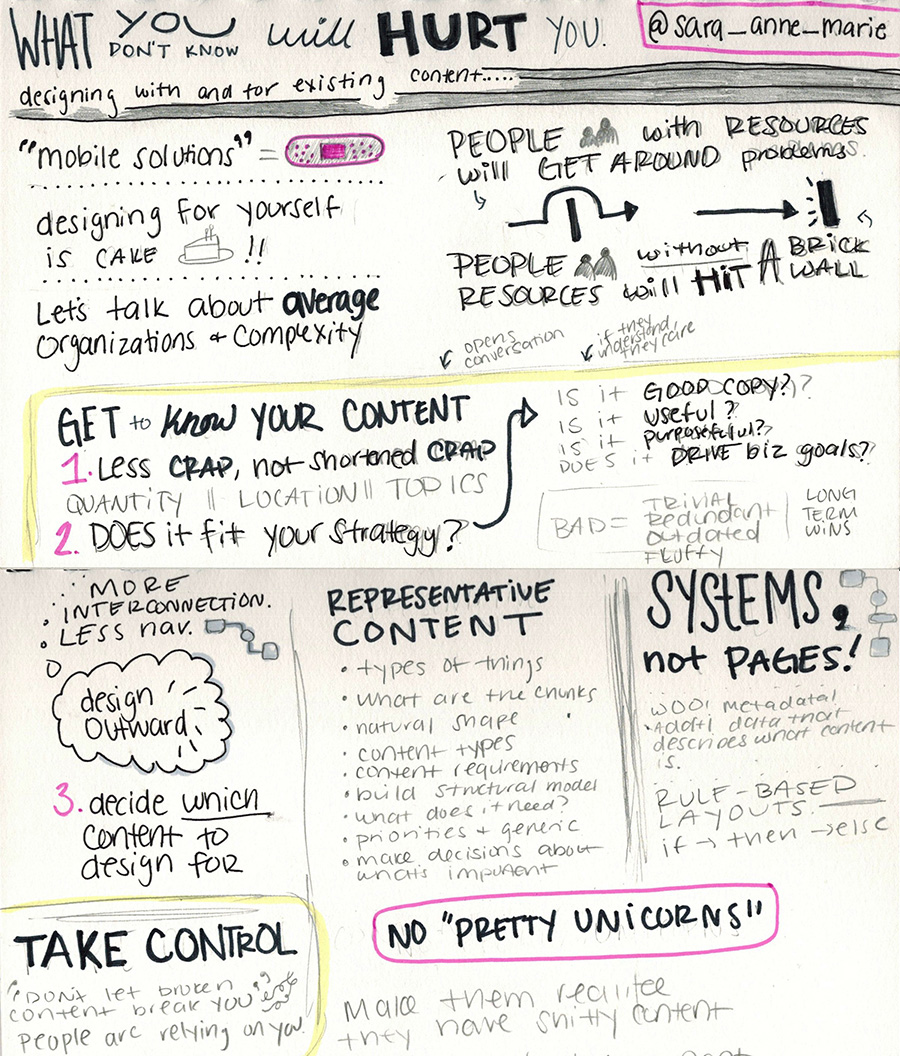 WHAT YOU DON'T KNOW will HURT YOU.
@sara_anne_marie
designing with and for existing content.....
"mobile solutions" =
designing for yourself
is CAKE !!
Let's talk about average
Organizations + Complexity
PEOPLE with RESOURCES
will GET AROUND problems
PEOPLE without
RESOURCES will HIT A BRICK
WALL
opens
conversation
if they
understand,
they care
GET to Know YOUR CONTENT
1. Less CRAP, not shortened CRAP
QUANTITY || LOCATION || TOPICS
2. DOES it fit your strategy?
IS it GOOD COPY?
IS it useful?
IS it purposeful?
DOES it DRIVE biz goals?
BAD = TRIVIAL
Redundant
Outdated
FLUFFY
LONG
TERM
WINS
MORE
INTERCONNECTION.
LESS nav.
design
Outward
3. decide which
content to
design for
REPRESENTATIVE
CONTENT
• types of things
• what are the chunks
• natural shape
• content types
• content requirements
• build structural model
• what does it need?
• priorities + generic
• make decisions about
what's important
SYSTEMS,
not PAGES!
WOO! metadata!
data that
describes what content
is.
RULE-BASED
LAYOUTS.
if → then → else
TAKE CONTROL
"DON'T let broken
content break you"
People are relying on you.
NO "PRETTY UNICORNS"
Make them realize
they have shitty content